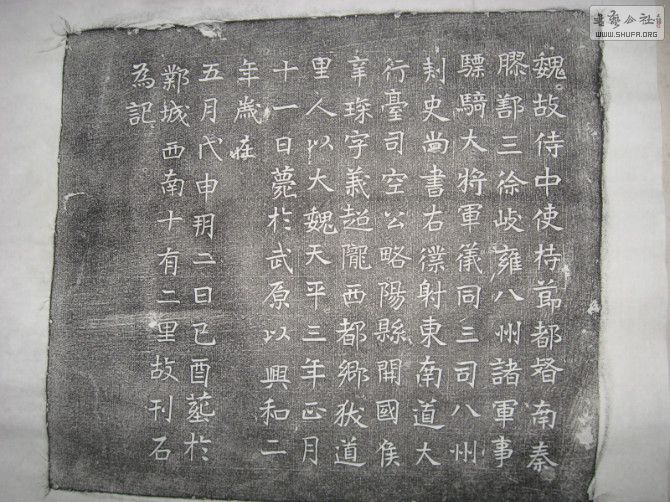 魏故侍中使持節都督南秦
膠鄯三徐岐雍八州諸軍事
驃騎大將軍儀同三司八州
刺史尚書右僕射東南道大
行臺司空公略陽縣開國侯
辛琛字義超隴西都鄉狄道
里人以大魏天平三年正月
十一日薨於武原以興和二
年歲在
五月戊申朔二日己酉葬於
鄴城西南十有二里故刊石
為記
書藝公社
WWW.SHUFA.ORG